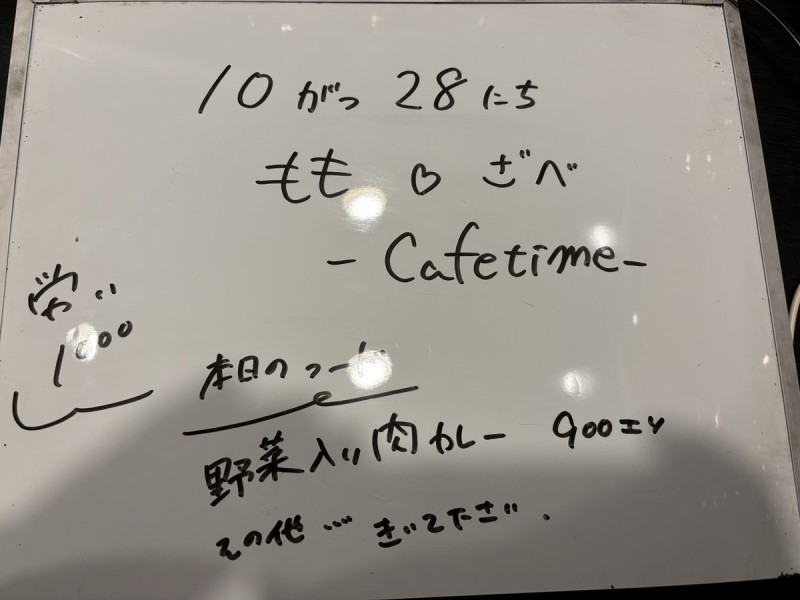 10がつ 28にち
もも ♡ ざべ
- Cafetime -
1000
本日のフード
野菜入り肉カレー 900エン
その他…きいて下さい.